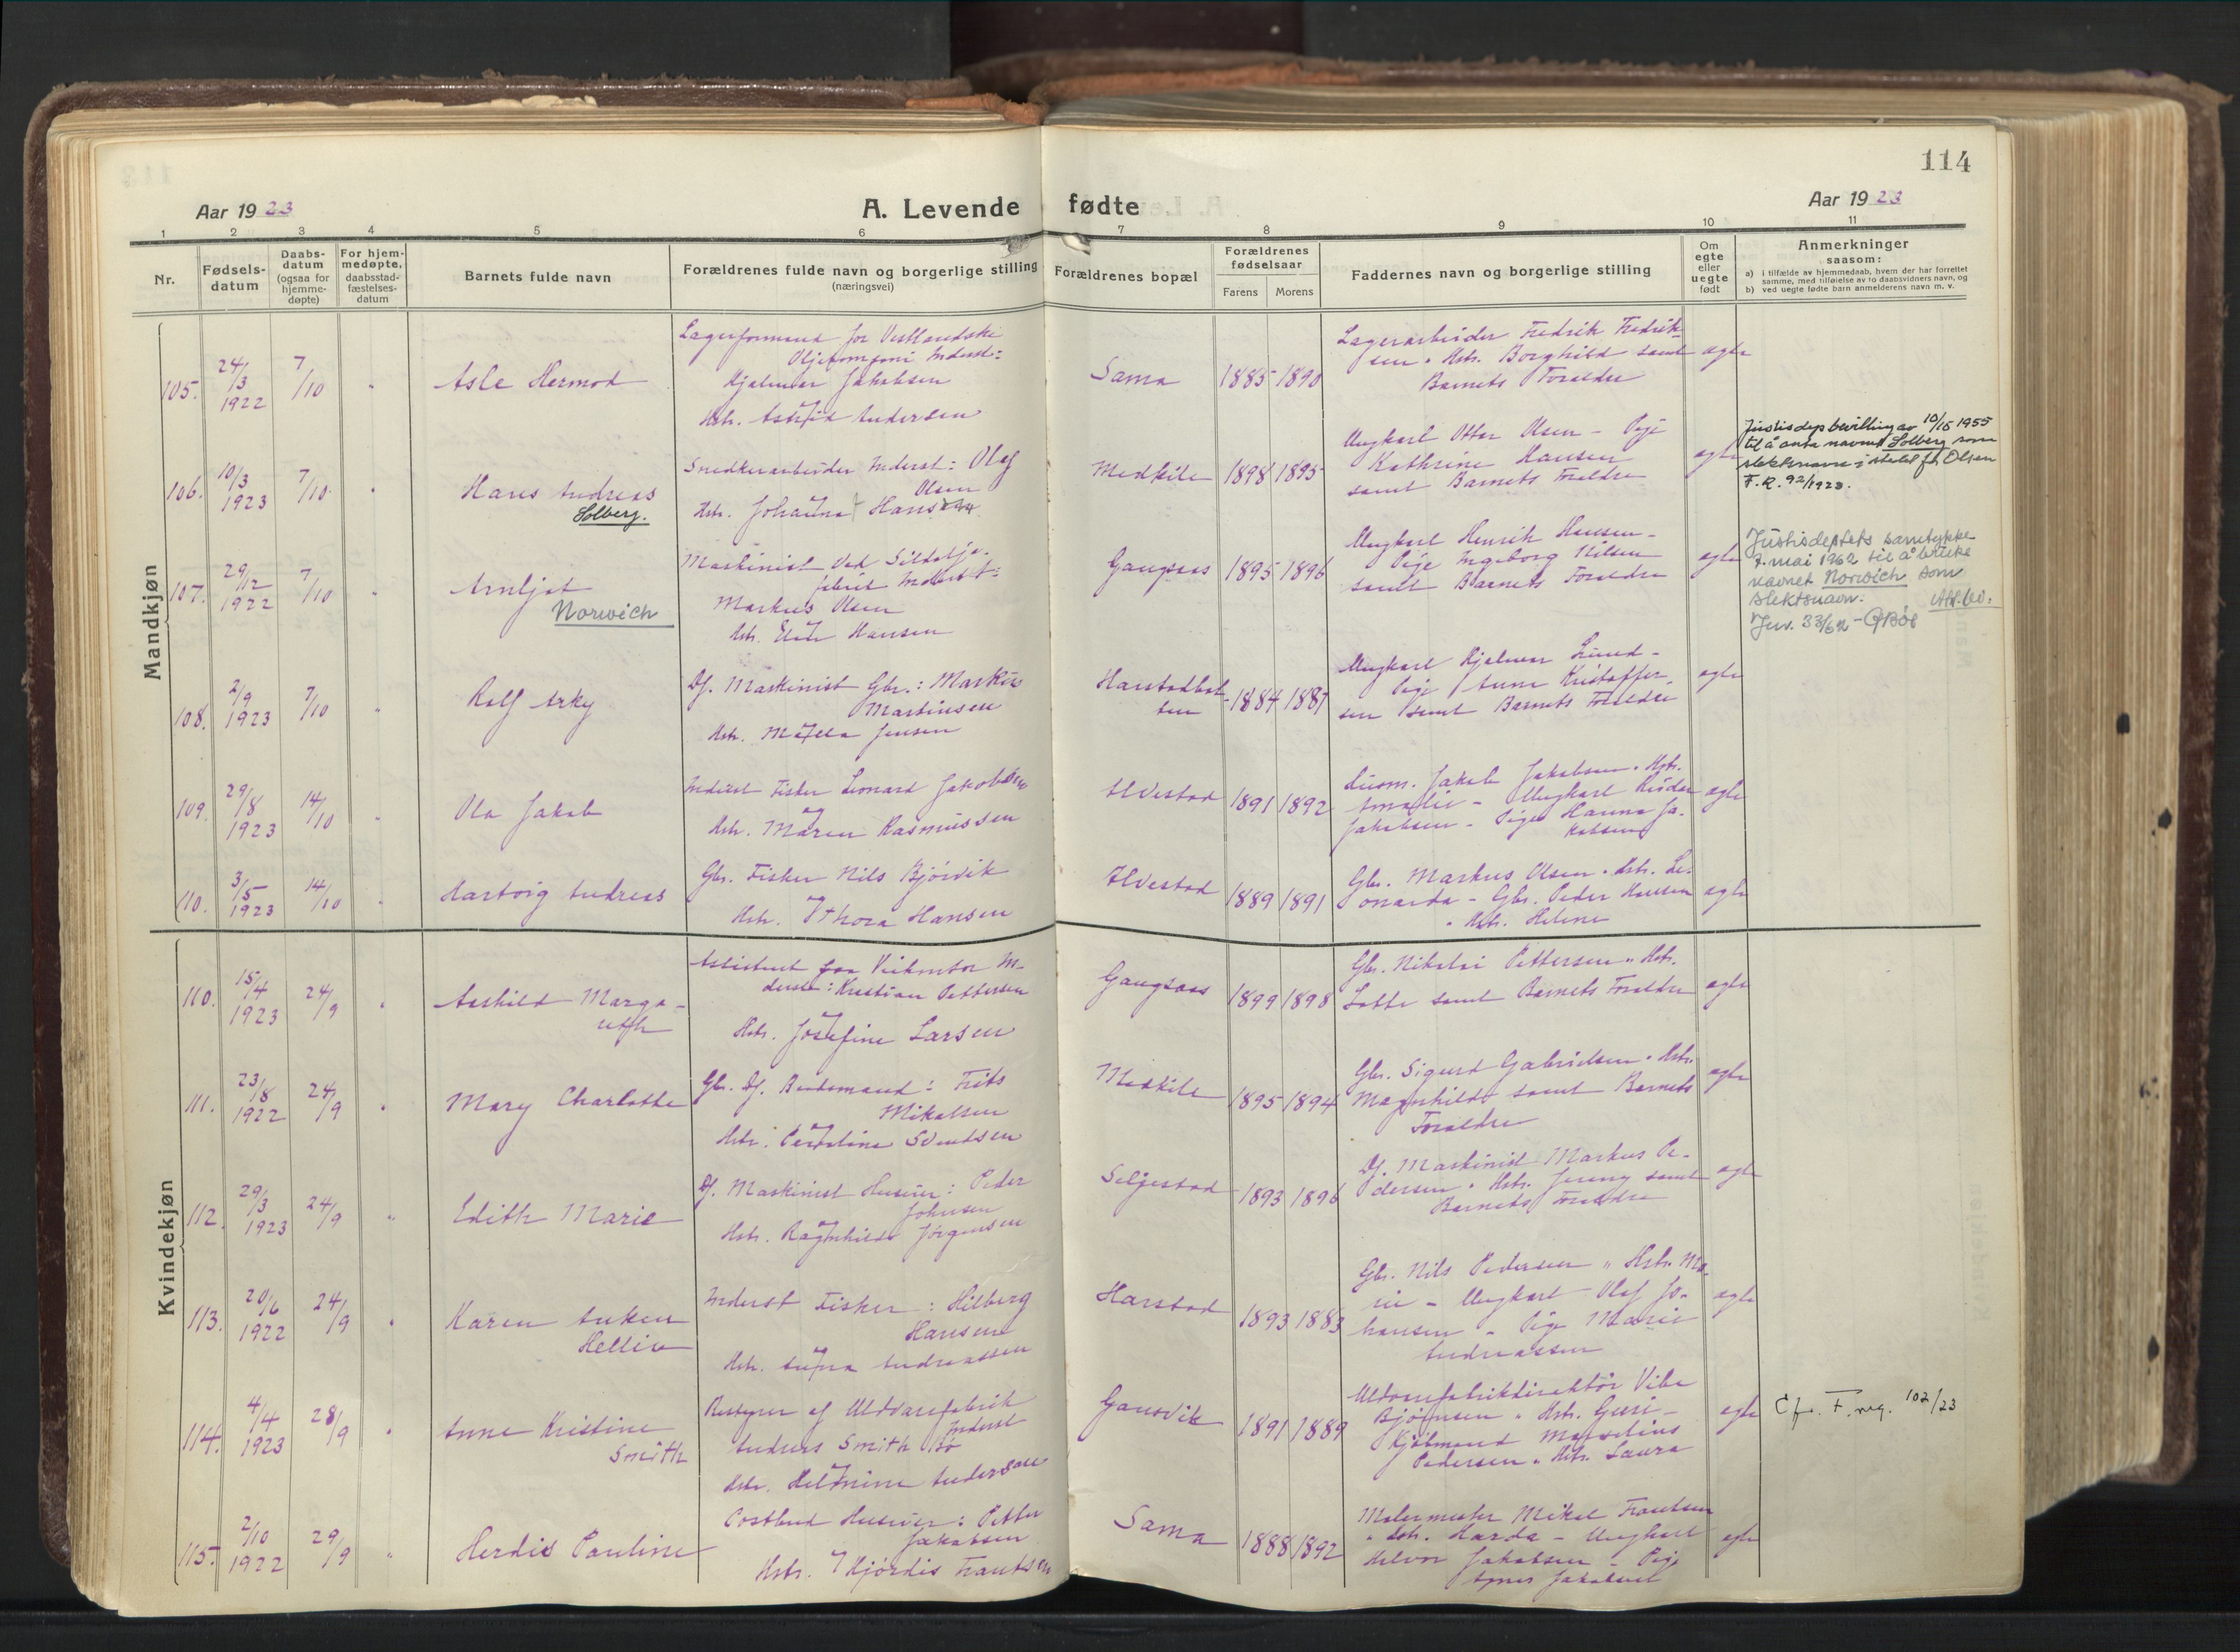 114
Aar 1923
A. Levende fødte
Aar 1923
1 2 3 4 5 6 7 8 9 10 11
Nr.
Fødsels-
datum
Daabs-
datum
(ogsaa for
hjemme-
døpte)
For hjem-
medøpte,
daabsstad-
fæstelses-
datum
Barnets fulde navn
Forældrenes fulde navn og borgerlige stilling
(næringsvei)
Forældrenes bopæl
Forældrenes
fødselsaar
Farens
Morens
Faddernes navn og borgerlige stilling
Om
egte
eller
uegte
født
Anmerkninger
saasom:
a) i tilfælde av hjemmedaab, hvem der har forrettet
samme, med tilføielse av to daabsvidners navn, og
b) ved uegte fødte barn anmelderens navn m. v.
Mandkjøn
105. 24/3 1922 7/10 " Asle Hermod
Lagerformand for Vestlandske
Oljekompani Inderst:
Hjalmar Jakobsen
Hstr. Astrid Andersen
Sama 1885 1890
Lagerarbeider Fredrik Fredrik-
sen " Hstr. Borghild samt
Barnets Foreldre
egte
106. 10/3 1923 7/10 " Hans Andreas
Solberg.
Snedkerarbeider Inderst: Olaf
Olsen
Hstr. Johanna Hansen
Medkile 1898 1895
Ungkarl Ottar Olsen - Pige
Kathrine Hansen
samt Barnets Foreldre
egte
Justisdeps bevilling av 10/10 1955
til å anta navnet Solberg som
slektsnavn i stedet for Olsen
F. R. 92/1923.
107. 29/12 1922 7/10 " Arnljot
Norwich
Maskinist ved Sildolje-
fabrik Inderst:
Markus Olsen
Hstr. Hansen
Gangsaas 1895 1896
Ungkarl Henrik Hansen -
Pige Ingeborg Nilsen
samt Barnets Foreldre
egte
Justisdeptets samtykke
7. mai 1962 til å bruke
navnet Norwich som
slektsnavn. Att. ut.
Jnr. 33/62
108. 2/9 1923 7/10 " Rolf Arky
Df. Maskinist Gbr.: Markus
Martinsen
Hstr. Milla Jensen
Harstadbot-
ten 1884 1887
Ungkarl Hjalmar Lund -
Pige Anne Kristoffer-
sen samt Barnets Foreldre
egte
109. 29/8 1923 14/10 " Ola Jakob
Inderst Fisker Leonard Jakobsen
Hstr. Maren Rasmussen
Ilvestad 1891 1892
Jakob Jakobsen " Hstr.
Amalie - Ungkarl Peder
Jakobsen - Pige Hanna Ja-
kobsen
egte
110. 3/5 1923 14/10 " Hartvig Andreas
Gbr. Fisker Nils Bjørvik
Hstr. Thora Hansen
Ilvestad 1889 1891
Gbr. Markus Olsen " Hstr. Le-
onarda - Gbr. Peder Hansen
" Hstr. Helene
egte
Kvindekjøn
110. 15/4 1923 24/9 " Aashild Marga-
reth
Assistent paa Veikontor In-
derst: Kristian Pettersen
Hstr. Josefine Larsen
Gangsaas 1899 1898
Gbr. Nikolai Pettersen " Hstr.
Lotte samt Barnets Foreldre
egte
111. 23/8 1922 24/9 " Mary Charlotte
Gbr. Df. Bestemand: Frits
Mikalsen
Hstr. Petrine Svendsen
Medkile 1895 1894
Gbr. Sigurd Gabrielsen " Hstr.
Magnhild samt Barnets
Foreldre
egte
112. 29/3 1923 24/9 " Edith Marie
Df. Maskinist Huseier: Peder
Johnsen
Hstr. Ragnhild Jørgensen
Seljestad 1893 1896
Df. Maskinist Markus Pe-
dersen " Hstr. Jenny samt
Barnets Foreldre
egte
113. 20/6 1922 24/9 " Karen Anken
Helliv
Inderst Fisker: Hilberg
Hansen
Hstr. Andreassen
Harstad 1893 1883
Gbr. Nils Pedersen " Hstr. Ma-
rie - Ungkarl Olaf Jo-
hansen - Pige Marie
Andreassen
egte
114. 4/4 1923 28/9 " Anne Kristine
Smith
Bestyrer af Uldvarefabrik
Inderst
Anders Smith Bø
Hstr. Helmine Andersen
Gansvik 1891 1889
Uldvarefabrikdirektør Vibe
Bjørnsen " Hstr. Guri -
Kjøbmand Marselius
Pedersen " Hstr. Laura
egte
Cfr. F. reg. 102/23
115. 2/10 1922 29/9 " Herdis Pauline
Postbud Huseier: Petter
Jakobsen
Hstr. Hjørdis Frantsen
Sama 1888 1892
Malermester Mikal Frantsen
" Hstr. Harda - Ungkarl
Halvor Jakobsen - Pige
Agnes Jakobsen
egte